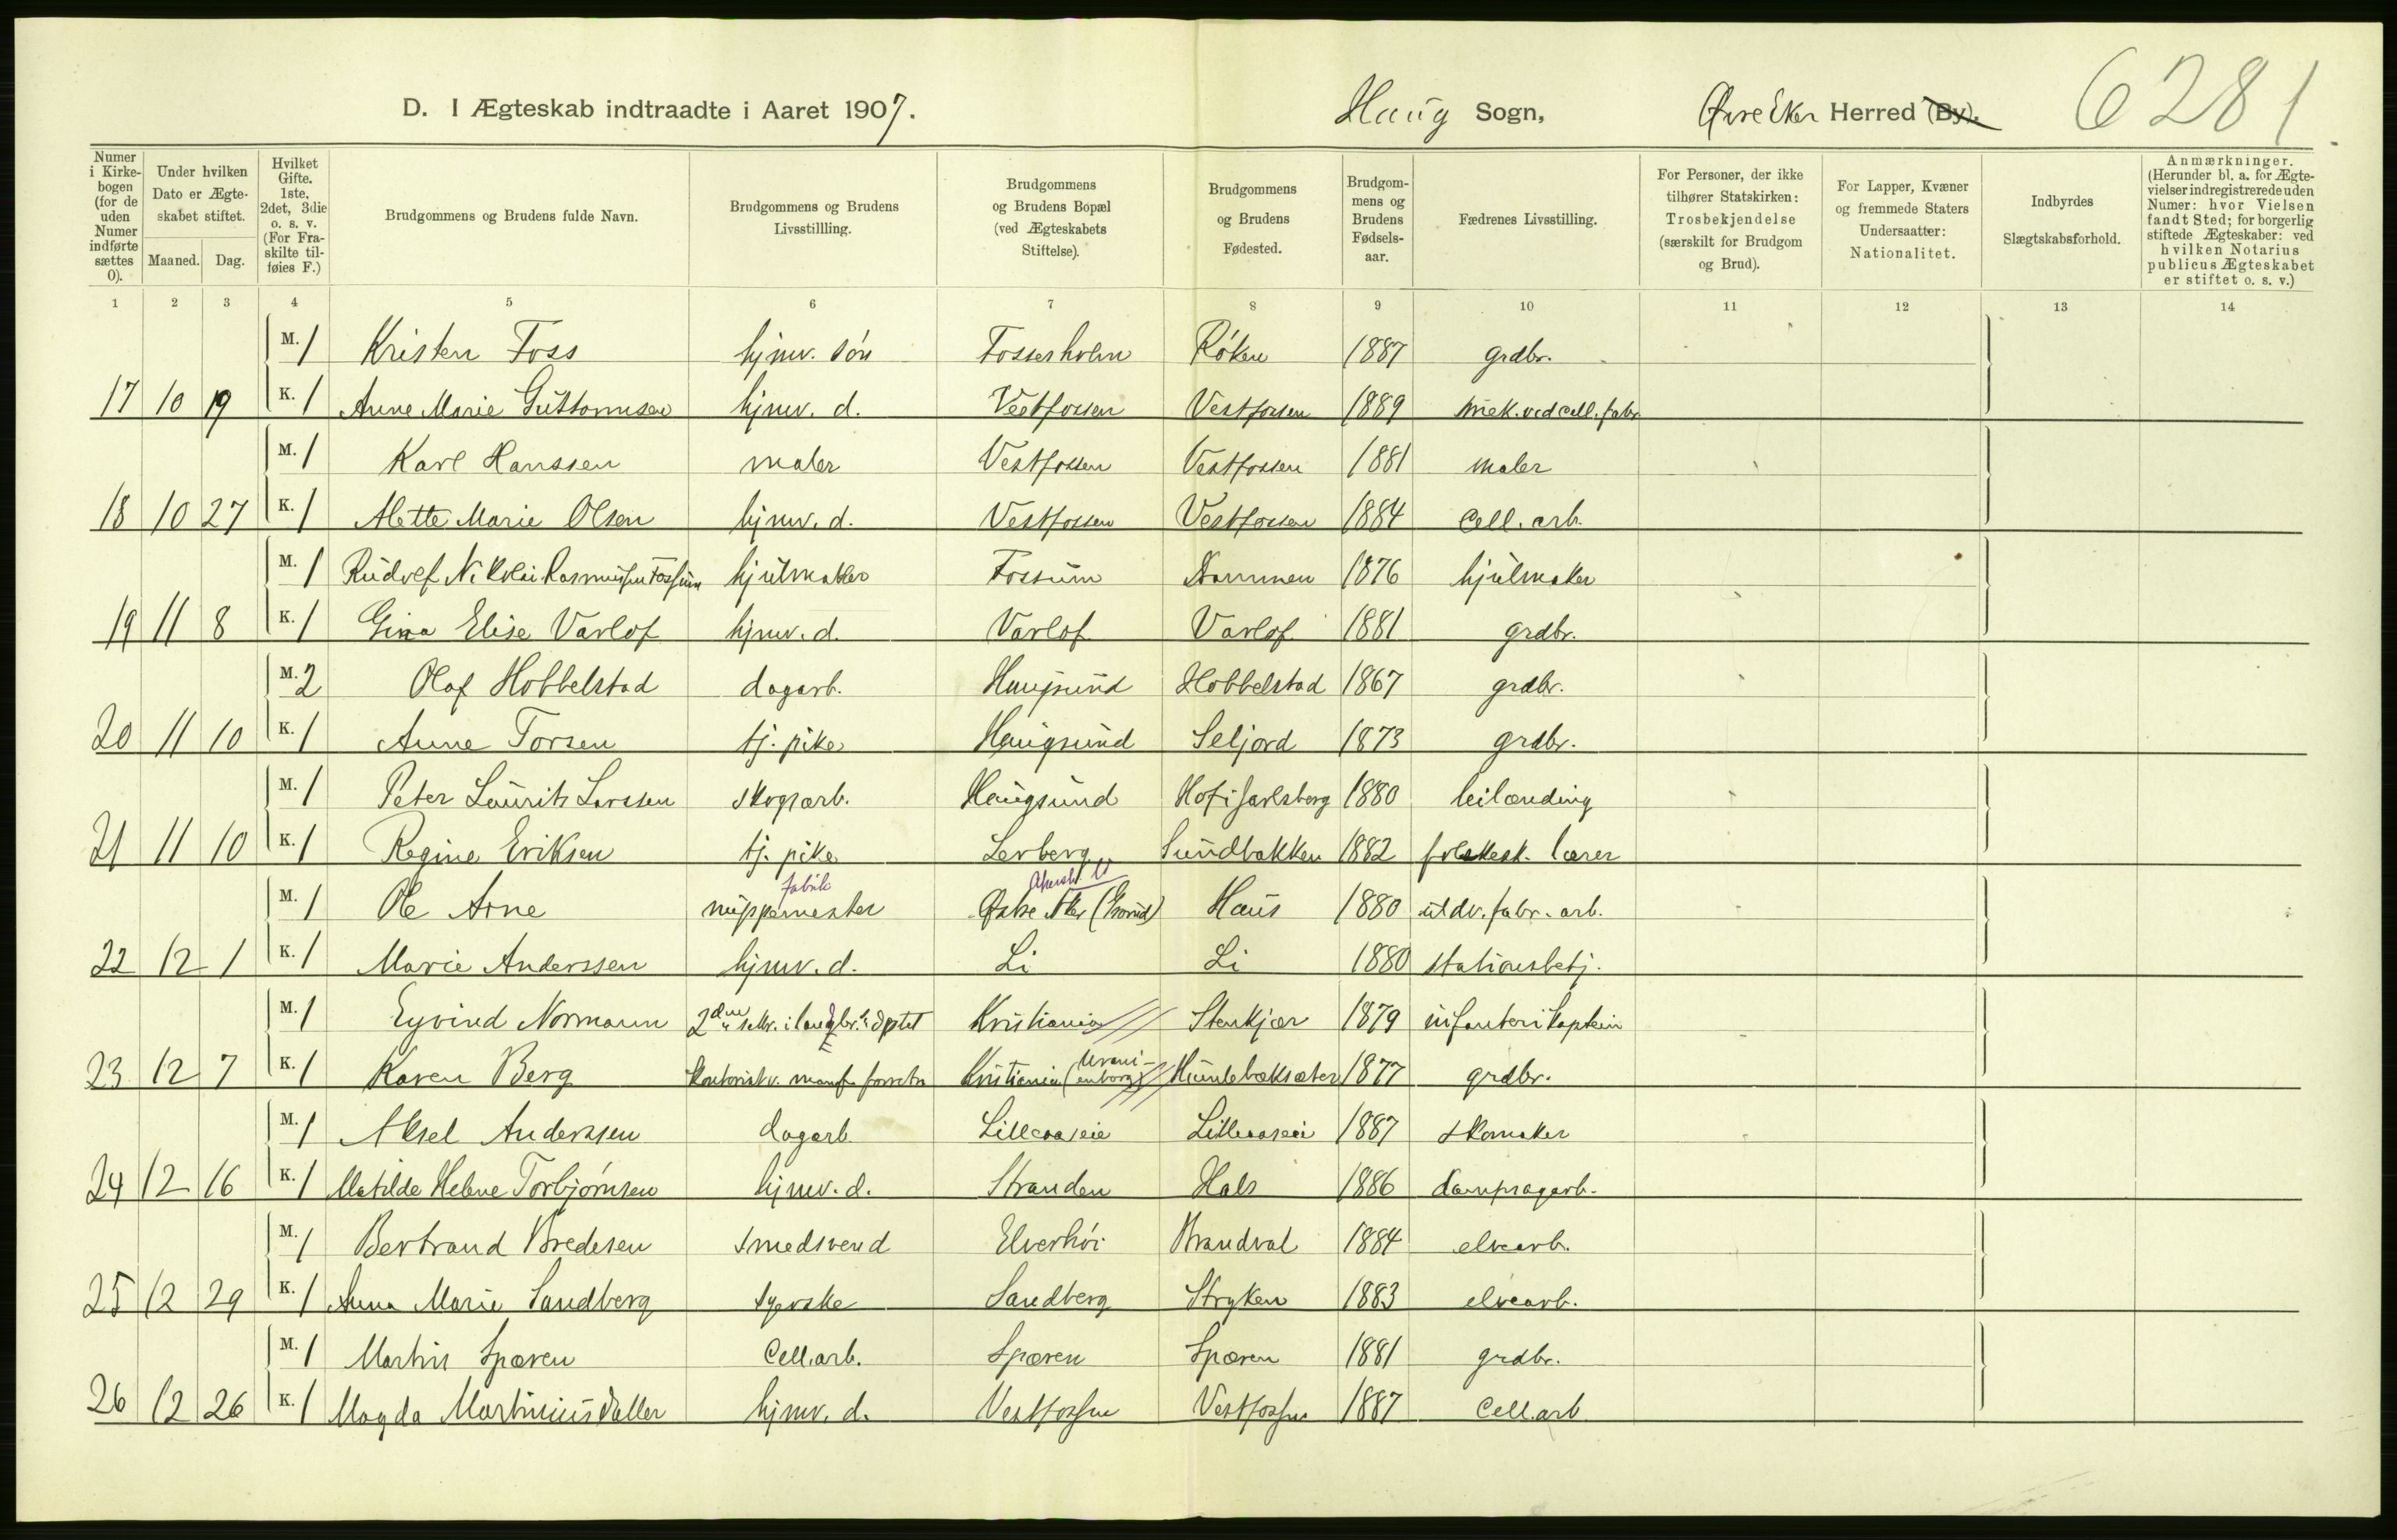 D. I Ægteskab indtraadte i Aaret 1907. Haug Sogn, Øvre Eker Herred (By). 6281
Numer i Kirkebogen (for de uden Numer indførte sættes 0).
Under hvilken Dato er Ægteskabet stiftet.
Maaned. Dag.
Hvilket Gifte. 1ste, 2det, 3die o. s. v. (For Fraskilte tilføies F.)
Brudgommens og Brudens fulde Navn.
Brudgommens og Brudens Livsstillling.
Brudgommens og Brudens Bopæl (ved Ægteskabets Stiftelse).
Brudgommens og Brudens Fødested.
Brudgommens og Brudens Fødselsaar.
Fædrenes Livsstilling.
For Personer, der ikke tilhører Statskirken: Trosbekjendelse (særskilt for Brudgom og Brud).
For Lapper, Kvæner og fremmede Staters Undersaatter: Nationalitet.
Indbyrdes Slægtskabsforhold.
Anmærkninger. (Herunder bl. a. for Ægtevielser indregistrerede uden Numer: hvor Vielsen fandt Sted; for borgerlig stiftede Ægteskaber: ved hvilken Notarius publicus Ægteskabet er stiftet o. s. v.)
1 2 3 4 5 6 7 8 9 10 11 12 13 14
M. 1 Kristen Foss hjmv. søn Fossesholm Røken 1887 grdbr.
17 10 19 K. 1 Anne Marie Guttormsen hjmv. d. Vestfossen Vestfossen 1889 mek. ved cell. fabr
M. 1 Karl Hanssen maler Vestfossen Vestfossen 1881 maler
18 10 27 K. 1 Alette Marie Olsen hjmv. d. Vestfossen Vestfossen 1884 Cell. arb.
M. 1 Rudolf Nikolai Rasmussen Fossum hjulmaker Fossum Drammen 1876 hjulmaker
19 11 8 K. 1 Gina Elise Varlof hjmv. d. Varlof Varlof 1881 grdbr.
M. 2 Olaf Hobbelstad dagarb. Haugsund Hobbelstad 1867 grdbr.
20 11 10 K. 1 Anne Torsen tj. pike Haugsund Seljord 1873 grdbr.
M. 1 Peter Laurits Larssen skogsarb. Haugsund Hof i Jarlsberg 1880 leilænding
21 11 10 K. 1 Regine Eriksen tj. pike Lerberg Sundbakken 1882 folkesk. lærer
fabrik Akersh.
M. 1 Ole Arne nuppemester Østre Aker (Grorud) Haus 1880 utdv. fabr. arb.
22 12 1 K. 1 Marie Anderssen hjmv. d. Li Li 1880 stationsbetj.
M. 1 Eyvind Normann 2den sekr. i landbr. dptet Kristiania Stenkjær 1879 infanterikaptein
23 12 7 K. 1 Karen Berg Kontorist v. manuf. forretn Kristiania (Uranienborg) 1877 grdbr.
M. 1 Aksel Anderssen dagarb. Lilleaaseie Lilleaaseie 1887 skomaker
24 12 16 K. 1 Matilde Helene Torbjørnsen hjmv. d. Stranden Hals 1886 dampsagarb.
M. 1 Bertrand Bredesen smedsvend Elverhøi Brandval 1884 elvearb.
25 12 29 K. 1 Anna Marie Sandberg syerske Sandberg Stryken 1883 elvearb.
M. 1 Martin Spæren Cell.arb. Spæren Spæren 1881 grdbr.
26 12 26 K. 1 Magda Martinius datter hjmv. d. Vestfossen Vestfossen 1887 Cell.arb